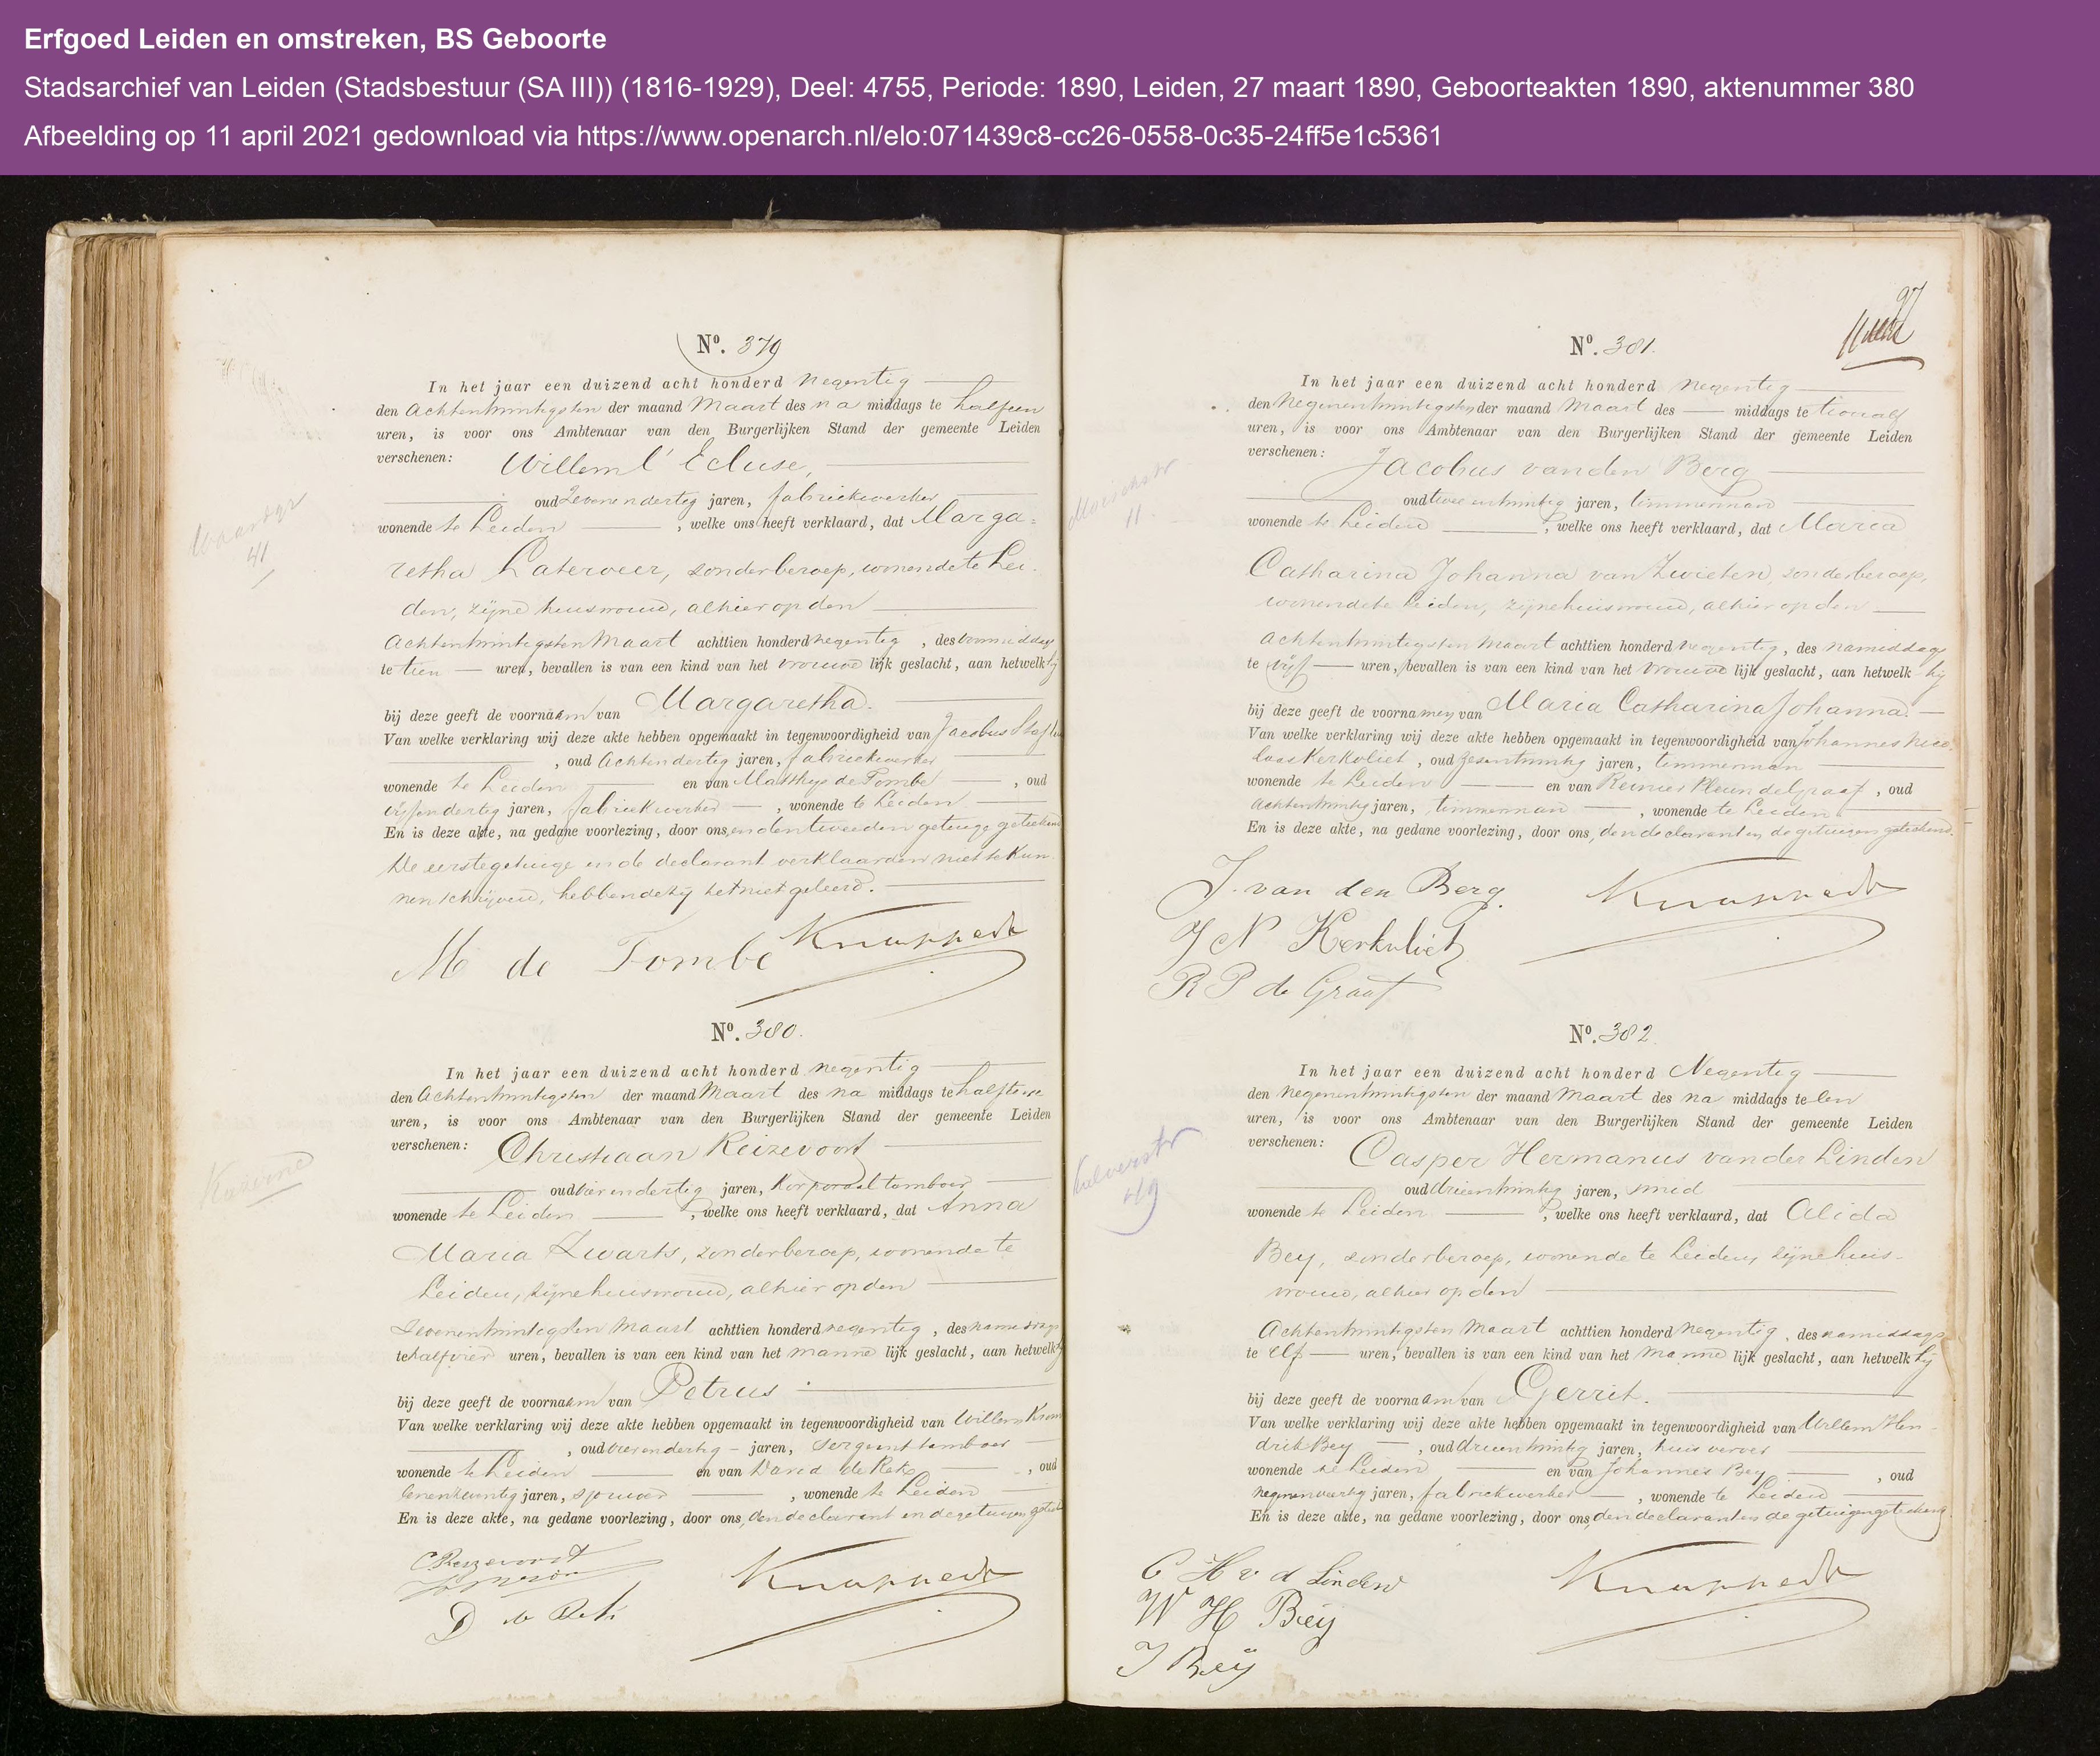 Erfgoed Leiden en omstreken, BS Geboorte
Stadsarchief van Leiden (Stadsbestuur (SA III)) (1816-1929), Deel: 4755, Periode: 1890, Leiden, 27 maart 1890, Geboorteakten 1890, aktenummer 380
Afbeelding op 11 april 2021 gedownload via https://www.openarch.nl/elo:071439c8-cc26-0558-0c35-24ff5e1c5361
No. 379
In het jaar een duizend acht honderd negentig
den Achtentwintigsten der maand Maart des na middags te halfeen
uren, is voor ons Ambtenaar van den Burgerlijken Stand der gemeente Leiden
verschenen: Willem l'Ecluse,
oud Zevenendertig jaren, fabriekwerker
wonende te Leiden, welke ons heeft verklaard, dat Marga=
41
retha Laterveer, zonder beroep, wonende te Lei-
den, zijne huisvrouw, alhier op den
Achtentwintigsten Maart achttien honderd negentig, des voormiddags
te tien uren, bevallen is van een kind van het vrouwelijk geslacht, aan hetwelk hij
bij deze geeft de voornaam van Margaretha.
Van welke verklaring wij deze akte hebben opgemaakt in tegenwoordigheid van Jacobus
, oud Achtendertig jaren, fabriekwerker
wonende te Leiden en van Matthys de Tombe, oud
vijfendertig jaren, fabriekwerker, wonende te Leiden
En is deze akte, na gedane voorlezing, door ons, en den tweeden getuige geteekend
De eerste getuige en de declarant verklaarden niet te kun-
nen schrijven, hebbende zij het niet geleerd.
M de Tombe
No. 380.
In het jaar een duizend acht honderd negentig
den Achtentwintigsten der maand Maart des na middags te halftwee
uren, is voor ons Ambtenaar van den Burgerlijken Stand der gemeente Leiden
verschenen: Christiaan Reizevoort
Kazerne
oud vierendertig jaren, Korporaal tamboer
wonende te Leiden, welke ons heeft verklaard, dat Anna
Maria Zwarts, zonder beroep, wonende te
Leiden, zijne huisvrouw, alhier op den
Zevenentwintigsten Maart achttien honderd negentig, des namiddags
te halfvier uren, bevallen is van een kind van het mannelijk geslacht, aan hetwelk hij
bij deze geeft de voornaam van Petrus
Van welke verklaring wij deze akte hebben opgemaakt in tegenwoordigheid van Willem
, oud vierendertig jaren, sergeant tamboer
wonende te Leiden en van David de, oud
jaren, wonende te Leiden
En is deze akte, na gedane voorlezing, door ons, den declarant en de getuigen geteekend
C Reizevoort
97
No. 381.
In het jaar een duizend acht honderd negentig
den Negenentwintigsten der maand Maart des middags te twaalf
uren, is voor ons Ambtenaar van den Burgerlijken Stand der gemeente Leiden
verschenen: Jacobus van den Berg
11.
oud tweeentwintig jaren, timmerman
wonende te Leiden, welke ons heeft verklaard, dat Maria
Catharina Johanna van Zwieten, zonder beroep,
wonende te Leiden, zijne huisvrouw, alhier op den
Achtentwintigsten Maart achttien honderd negentig, des namiddags
te vijf uren, bevallen is van een kind van het vrouwelijk geslacht, aan hetwelk hij
bij deze geeft de voornamen van Maria Catharina Johanna.
Van welke verklaring wij deze akte hebben opgemaakt in tegenwoordigheid van Johannes Nico-
laas Kerkvliet, oud Zesentwintig jaren, timmerman
wonende te Leiden en van Reinier Pleun de Graaf, oud
Achtentwintig jaren, timmerman, wonende te Leiden.
En is deze akte, na gedane voorlezing, door ons, den declarant en de getuigen geteekend.
J. van den Berg.
J N Kerkvliet
R P de Graaf
No. 382.
In het jaar een duizend acht honderd Negentig
den Negenentwintigsten der maand Maart des na middags te een
uren, is voor ons Ambtenaar van den Burgerlijken Stand der gemeente Leiden
verschenen: Casper Hermanus van der Linden
Kalverstr
49
oud drieentwintig jaren, smid
wonende te Leiden, welke ons heeft verklaard, dat Alida
Bey, zonder beroep, wonende te Leiden, zijne huis-
vrouw, alhier op den
Achtentwintigsten Maart achttien honderd Negentig, des namiddags
te Elf uren, bevallen is van een kind van het mannelijk geslacht, aan hetwelk hij
bij deze geeft de voornaam van Gerrit.
Van welke verklaring wij deze akte hebben opgemaakt in tegenwoordigheid van Willem Hen-
drik Bey, oud drieentwintig jaren, huisverver
wonende te Leiden en van Johannes Bey, oud
jaren, fabriekwerker, wonende te Leiden
En is deze akte, na gedane voorlezing, door ons, den declarant en de getuigen geteekend
C H v d Linden
W H Beÿ
J Beÿ